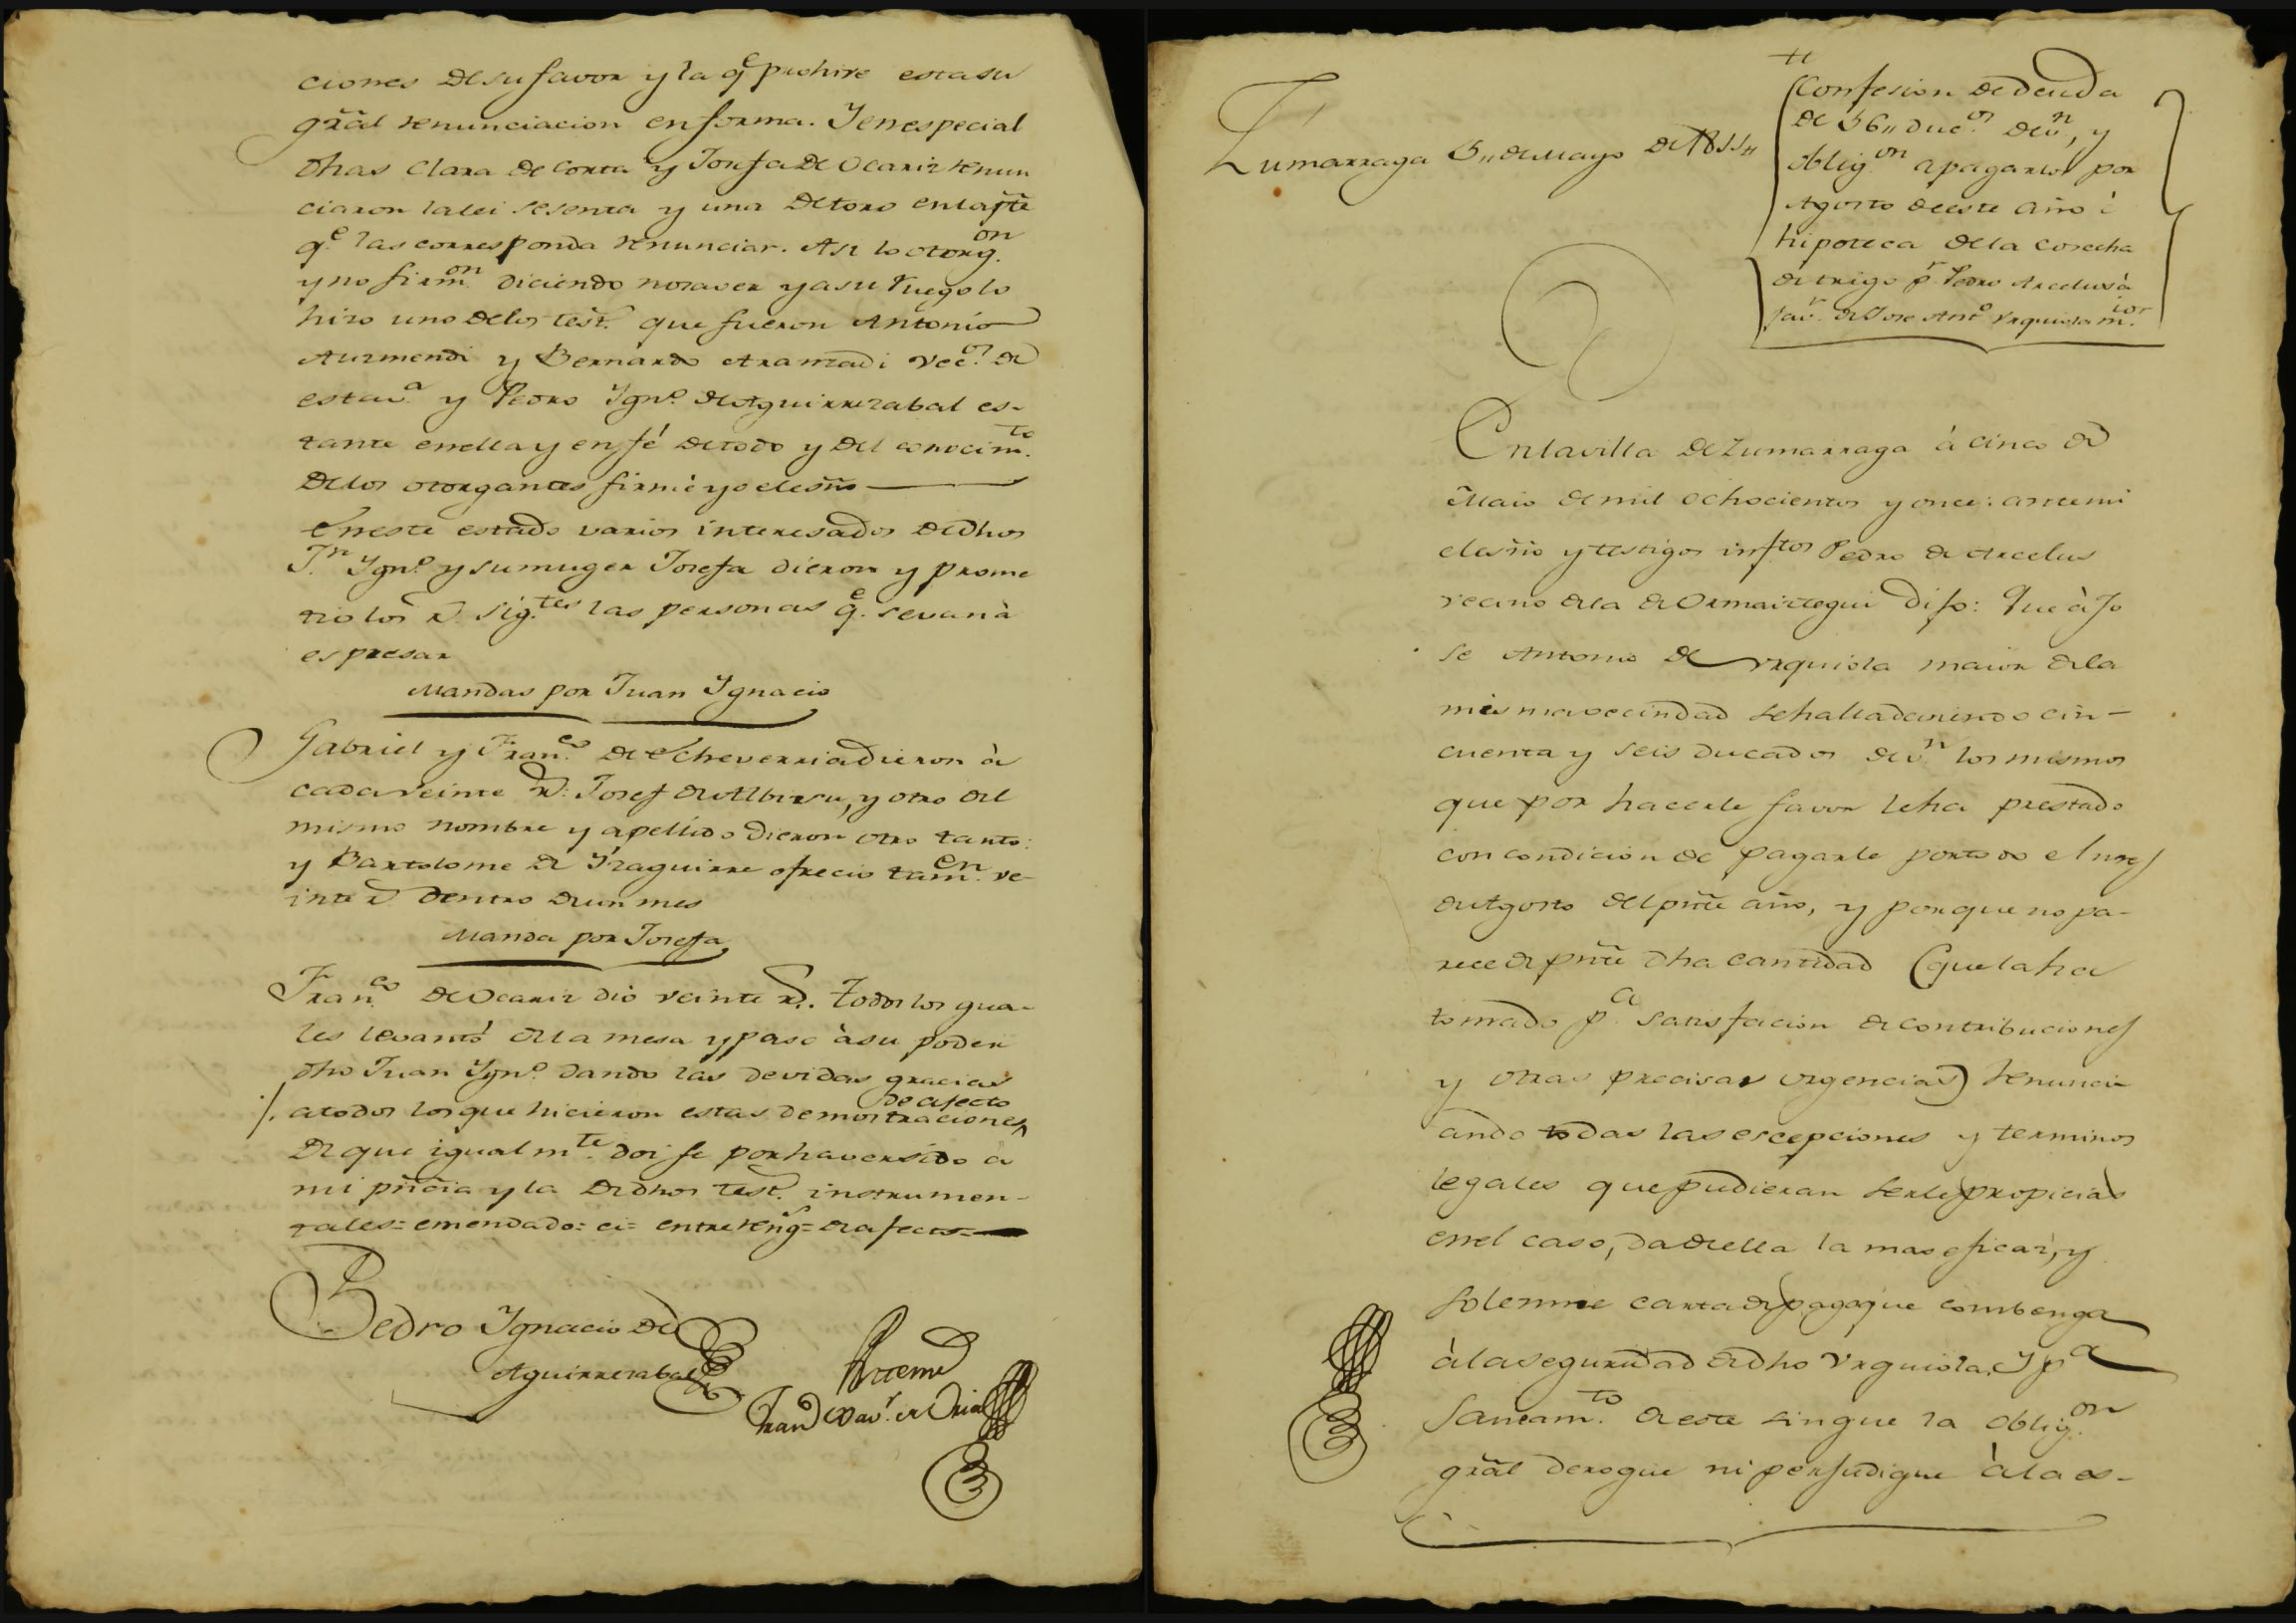 ciones de su favor y la q.e prohive esta su
grãl renunciacion en forma. Y en especial
dhas Clara de Corta y Josefa de Ocariz renun
ciaron la lei sesenta y una de toro en la pte
q.e las corresponda renunciar. Asi lo otorg.on
y no firm.on diciendo no saver y a su ruego lo
hizo uno de los test.s que fueron Antonio
Auzmendi y Bernardo Aramendi vec.s de
esta v.a y Pedro Ygn.o de Aguirrezabal es-
tante en ella y en fé de todo y del conocim.to
de los otorgantes firmé yo el esño
En este estado varios interesados de dhos
J.n Ygn.o y su muger Josefa dieron y prome
tio los r.s sig.tes las personas q.e se van à
espresar
Mandas por Juan Ygnacio
Gabriel y Fran.co de Echeverria dieron à
cada veinte r.s: Josef de Albizsu, y otro del
mismo nombre y apellido dieron otro tanto:
y Bartolome de Yzaguirre ofrecio tam.en ve-
inte r.s dentro de un mes
Manda por Josefa
Fran.co de Ocariz dio veinte r.s. Todos los qua-
les levantó de la mesa y paso à su poder
dho Juan Ygn.o dando las devidas gracias
de afecto
/. a todos los que hicieron estas demostraciones
De que igualm.te doi fe por haver sido a
mi pñcia y la de dhos test.s instrumen-
tales= emendado= ei= entrereng.s= de afecto=
Pedro Ygnacio de
Aguirrezabal
Ante mi
Fran.co Xav.r de Oria
Zumarraga 5,, de Mayo de 1811,,
Confesion de deuda
de 56,, duc.s de v.n, y
oblig.on a pagarlos por
Agosto de este año è
hipoteca de la cosecha
de trigo p.r Pedro Arcelus à
fav.r de Jose Ant.o Urquiola m.ior
En la villa de Zumarraga à cinco de
Maio de mil ochocientos y once: ante mi
el esño y testigos infros Pedro de Arcelus
vecino de la de Ormaiztegui Dijo: Que à Jo
se Antonio de Urquiola maior de la
misma vecindad se halla deviendo cin-
cuenta y seis ducados de v.n los mismos
que por hacerle favor le ha prestado
con condicion de pagarle por todo el mes
de Agosto del pñte año, y porque no pa-
rece de pñte dha cantidad (que la ha
tomado p.a satisfacion de contribuciones
y otras precisas urgencias) renunci-
ando todas las escepciones y terminos
legales que pudieran serle propicias
en el caso, da de ella la mas eficaz, y
solemne carta de pago que combenga
à la seguridad de dho Urquiola. Y p.a
saneam.to de este sin que la oblig.on
grãl derogue ni perjudique à la es-